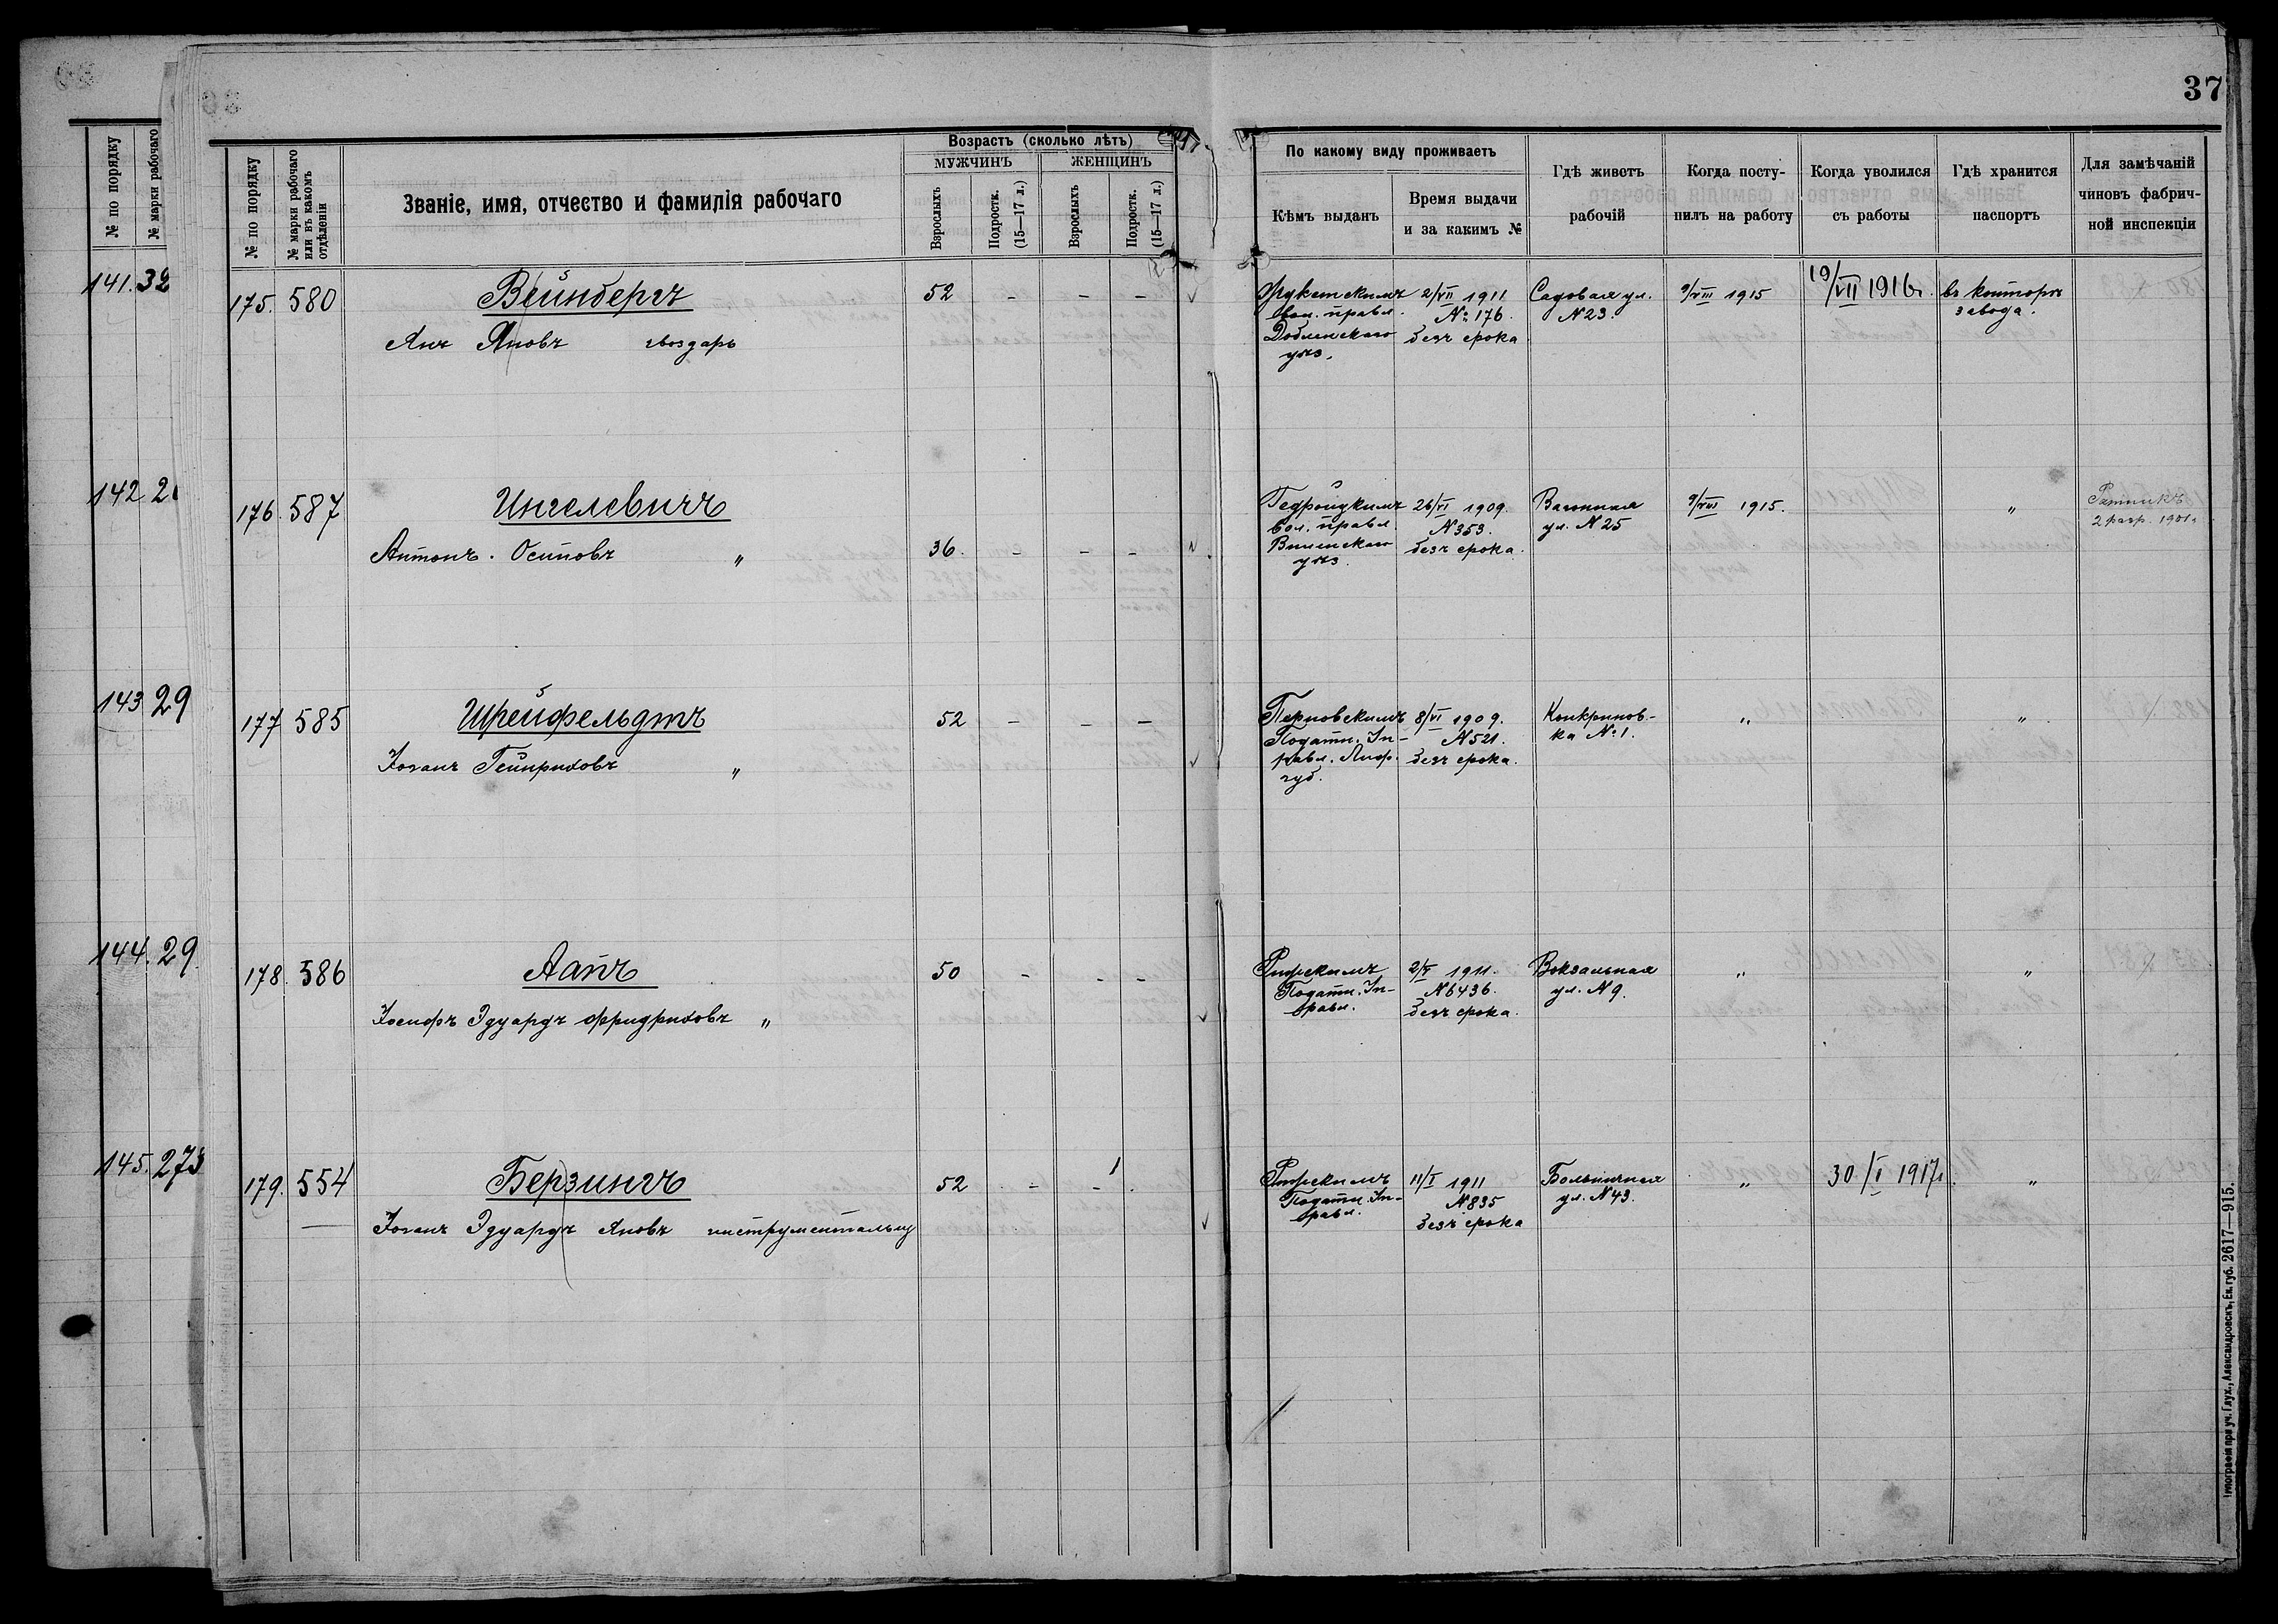 37
№ по порядку
№ марки рабочаго
141. 32
142 2
143 29
144. 29.
145. 273
№ по порядку
№ марки рабочаго или въ какомъ отдѣленіи
Званіе, имя, отчество и фамилія рабочаго
Возрастъ (сколько лѣтъ)
МУЖЧИНЪ
ЖЕНЩИНЪ
Взрослыхъ
Подростк. (15—17 л.)
Взрослыхъ
Подростк. (15—17 л.)
По какому виду проживаетъ
Кѣмъ выданъ
Время выдачи и за какимъ №
Гдѣ живетъ рабочій
Когда поступилъ на работу
Когда уволился съ работы
Гдѣ хранится паспортъ
Для замѣчаній чиновъ фабричной инспекціи
175. 580 Вейнбергъ 52 - - -
Янъ Яновъ гвоздарь
вол. правл.
Добленскаго
уѣз.
2/VII 1911
№ 176.
безъ срока
Садовая ул.
N 23.
9/VIII 1915
19/VII 1916г.
въ конторѣ
завода.
176. 587 Ингелевичъ
Антонъ Осиповъ " 36. - - -
Гедройцкимъ
вол. правл.
Виленскаго
уѣз.
26/VI 1909.
N 353.
безъ срока.
ул. N 25
9/VIII 1915.
"
Ратникъ
2 разр. 1901г.
177 585 Шрейфельдтъ 52 - - -
Іоганъ Гейнриховъ "
Перновскимъ
Податн. Уп-
равл. Лиф.
губ.
8/VI 1909.
N 521.
безъ срока.
Конкринов-
ка № 1.
"
"
178. 586 Аапъ 50 - - -
Іосифъ Эдуардъ Фридриховъ "
Рижскимъ
Податн. Уп-
равл.
2/V 1911.
N 6436.
безъ срока.
Вокзальная
ул. N 9.
"
"
179. 554 Берзингъ 52 - -
Іоганъ Эдуардъ Яновъ инструментальщ
Рижскимъ
Податн. Уп-
равл.
11/I 1911
N 835
безъ срока
Больничная
ул. N 43.
"
30/I 1917г.
"
Типографія при уч. Глух., Александровскъ, Ек. губ. 2617—915.